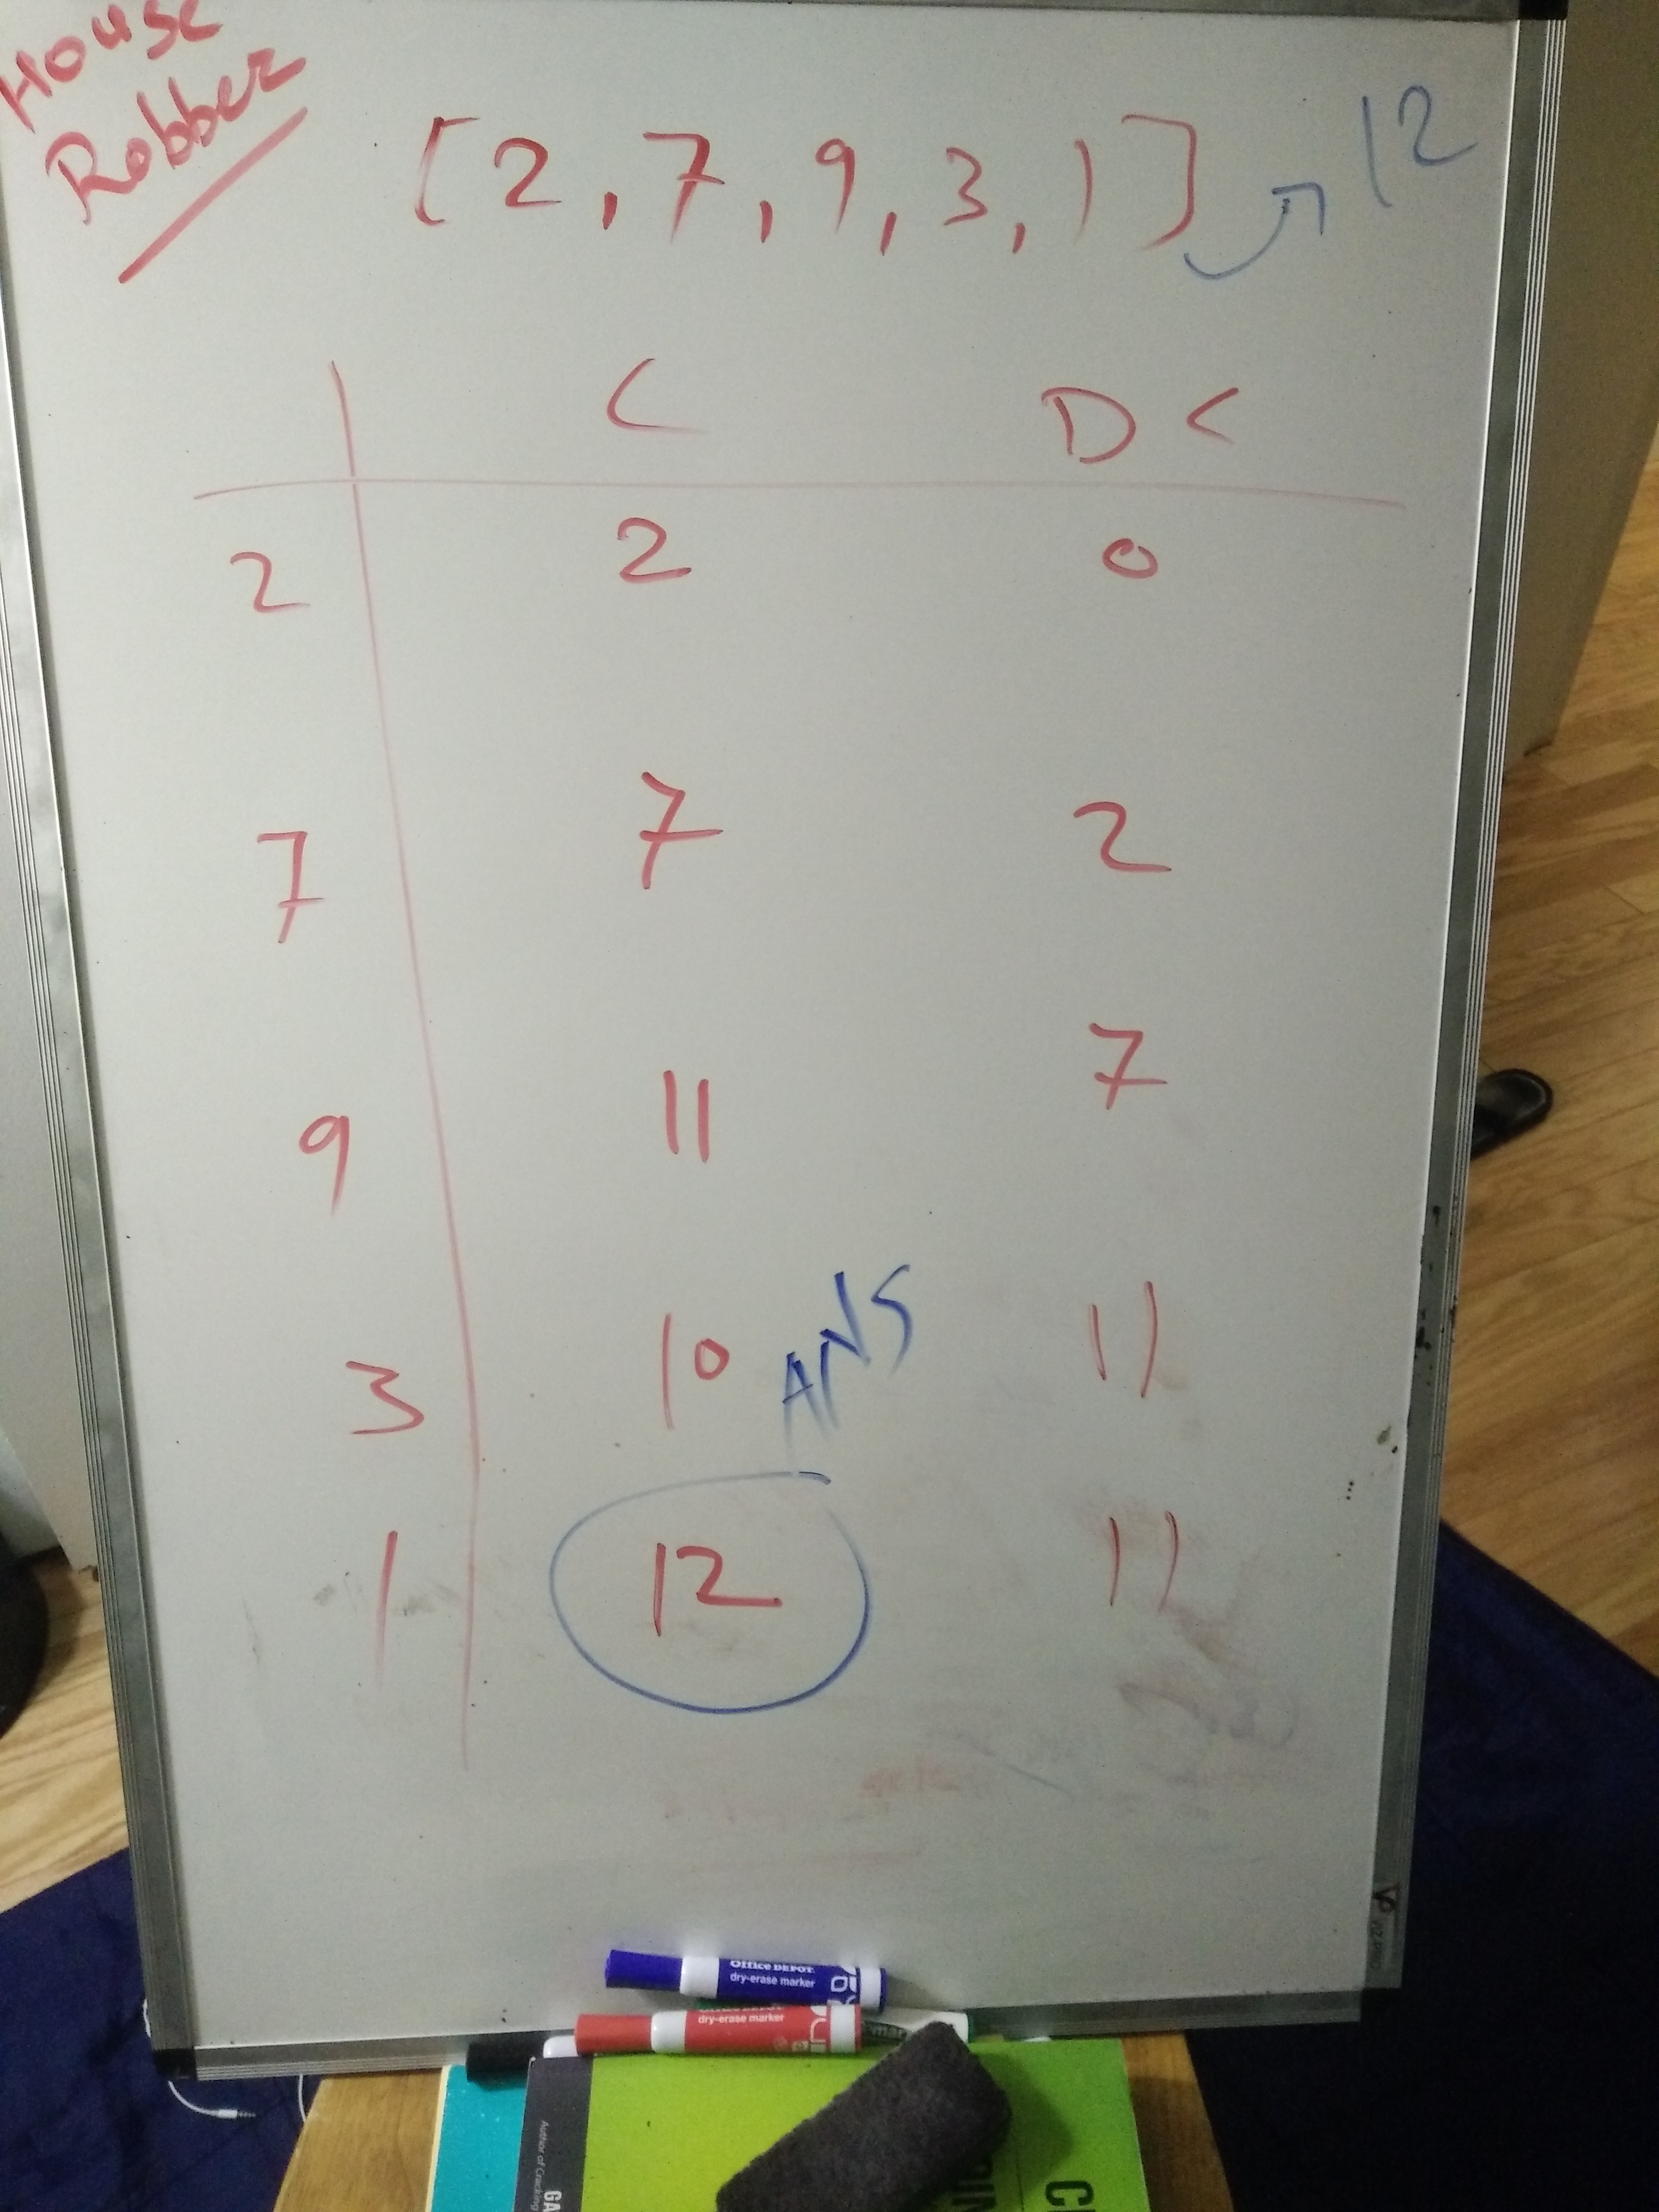 House
Robber
[2, 7, 9, 3, 1] 12
C DC
2 2 0
7 7 2
9 11 7
3 10 11
ANS
1 12 11
Office DEPOT
dry-erase marker
dry-erase marker
Author of Cracking
GA